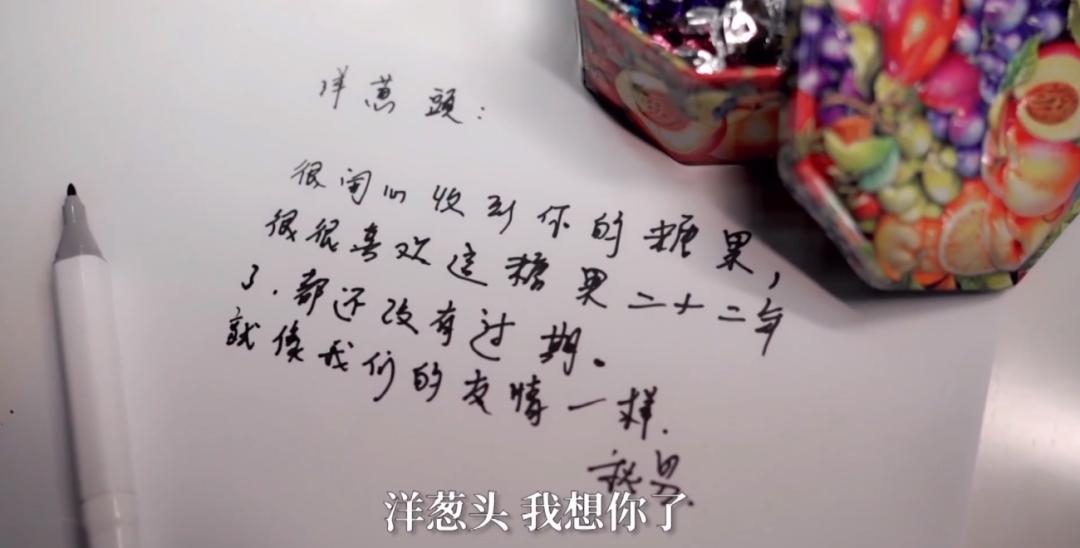 洋蔥頭：
很闹心收到你的糖果，
很很喜欢这糖果二十二年
了．都还没有过期。
就像我们的友情一样．
洋葱头 我想你了